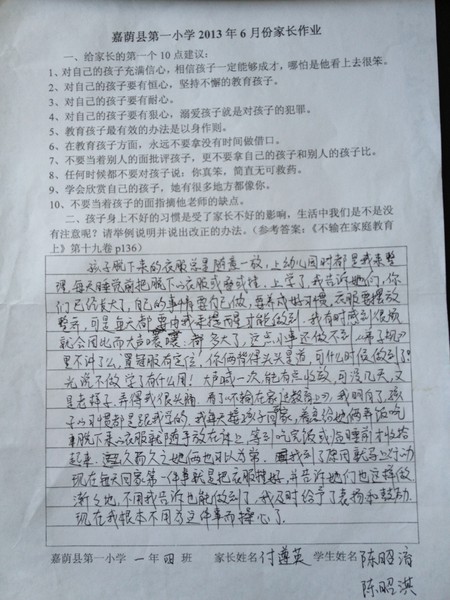 嘉荫县第一小学 2013 年 6 月份家长作业
一、给家长的第一个 10 点建议：
1、对自己的孩子充满信心，相信孩子一定能够成才，哪怕是他看上去很笨。
2、对自己的孩子要有恒心，坚持不懈的教育孩子。
3、对自己的孩子要有耐心。
4、对自己的孩子要有狠心，溺爱孩子就是对孩子的犯罪。
5、教育孩子最有效的办法是以身作则。
6、在教育孩子方面，永远不要拿没有时间做借口。
7、不要当着别人的面批评孩子，更不要拿自己的孩子和别人的孩子比。
8、任何时候都不要对孩子说：你真笨，简直无可救药。
9、学会欣赏自己的孩子，她有很多地方都像你。
10、不要当着孩子的面指摘他老师的缺点。
二、孩子身上不好的习惯是受了家长不好的影响，生活中我们是不是没
有注意呢？请举例说明并说出改正的办法。（参考答案：《不输在家庭教育
上》第十九卷 p136）
孩子脱下来的衣服总是随意一放，上幼儿园时都是我来整
理，每天睡觉前把脱下的衣服或叠或挂，上学了，我告诉她们，你
们已经长大了，自己的事情要自己做，要养成好习惯，衣服要摆放
整齐，可是每天都要由我来提醒才能做到，我有时感到很烦
就会因此而大声嚷嚷：都多大了，这点小事还做不到《弟子规》
里不讲了么，置冠服有定位！你俩背得头头是道，可什么时候做到了
光说不做学了有什么用！大声喊一次，能有点收敛，可没几天，又
是老样子，弄得我很头痛，看了《不输在家庭教育上》，我明白了，孩
子的习惯都是跟我学的，我每天接孩子回家，着急给她俩弄饭吃
脱下来的衣服就随手放在床上，等到吃完饭或后睡前才收拾
起来，久而久之她俩也习以为常，我找到了原因就马上行动
现在每天回家第一件事就是把衣服挂好，并告诉她们也这样做
渐渐地，不用我告诉也能做到了，我及时给予了表扬和鼓励，
现在我根本不用为这件事而操心了。
嘉荫县第一小学 一 年 四 班 家长姓名 付遵英 学生姓名 陈昭
陈昭淇